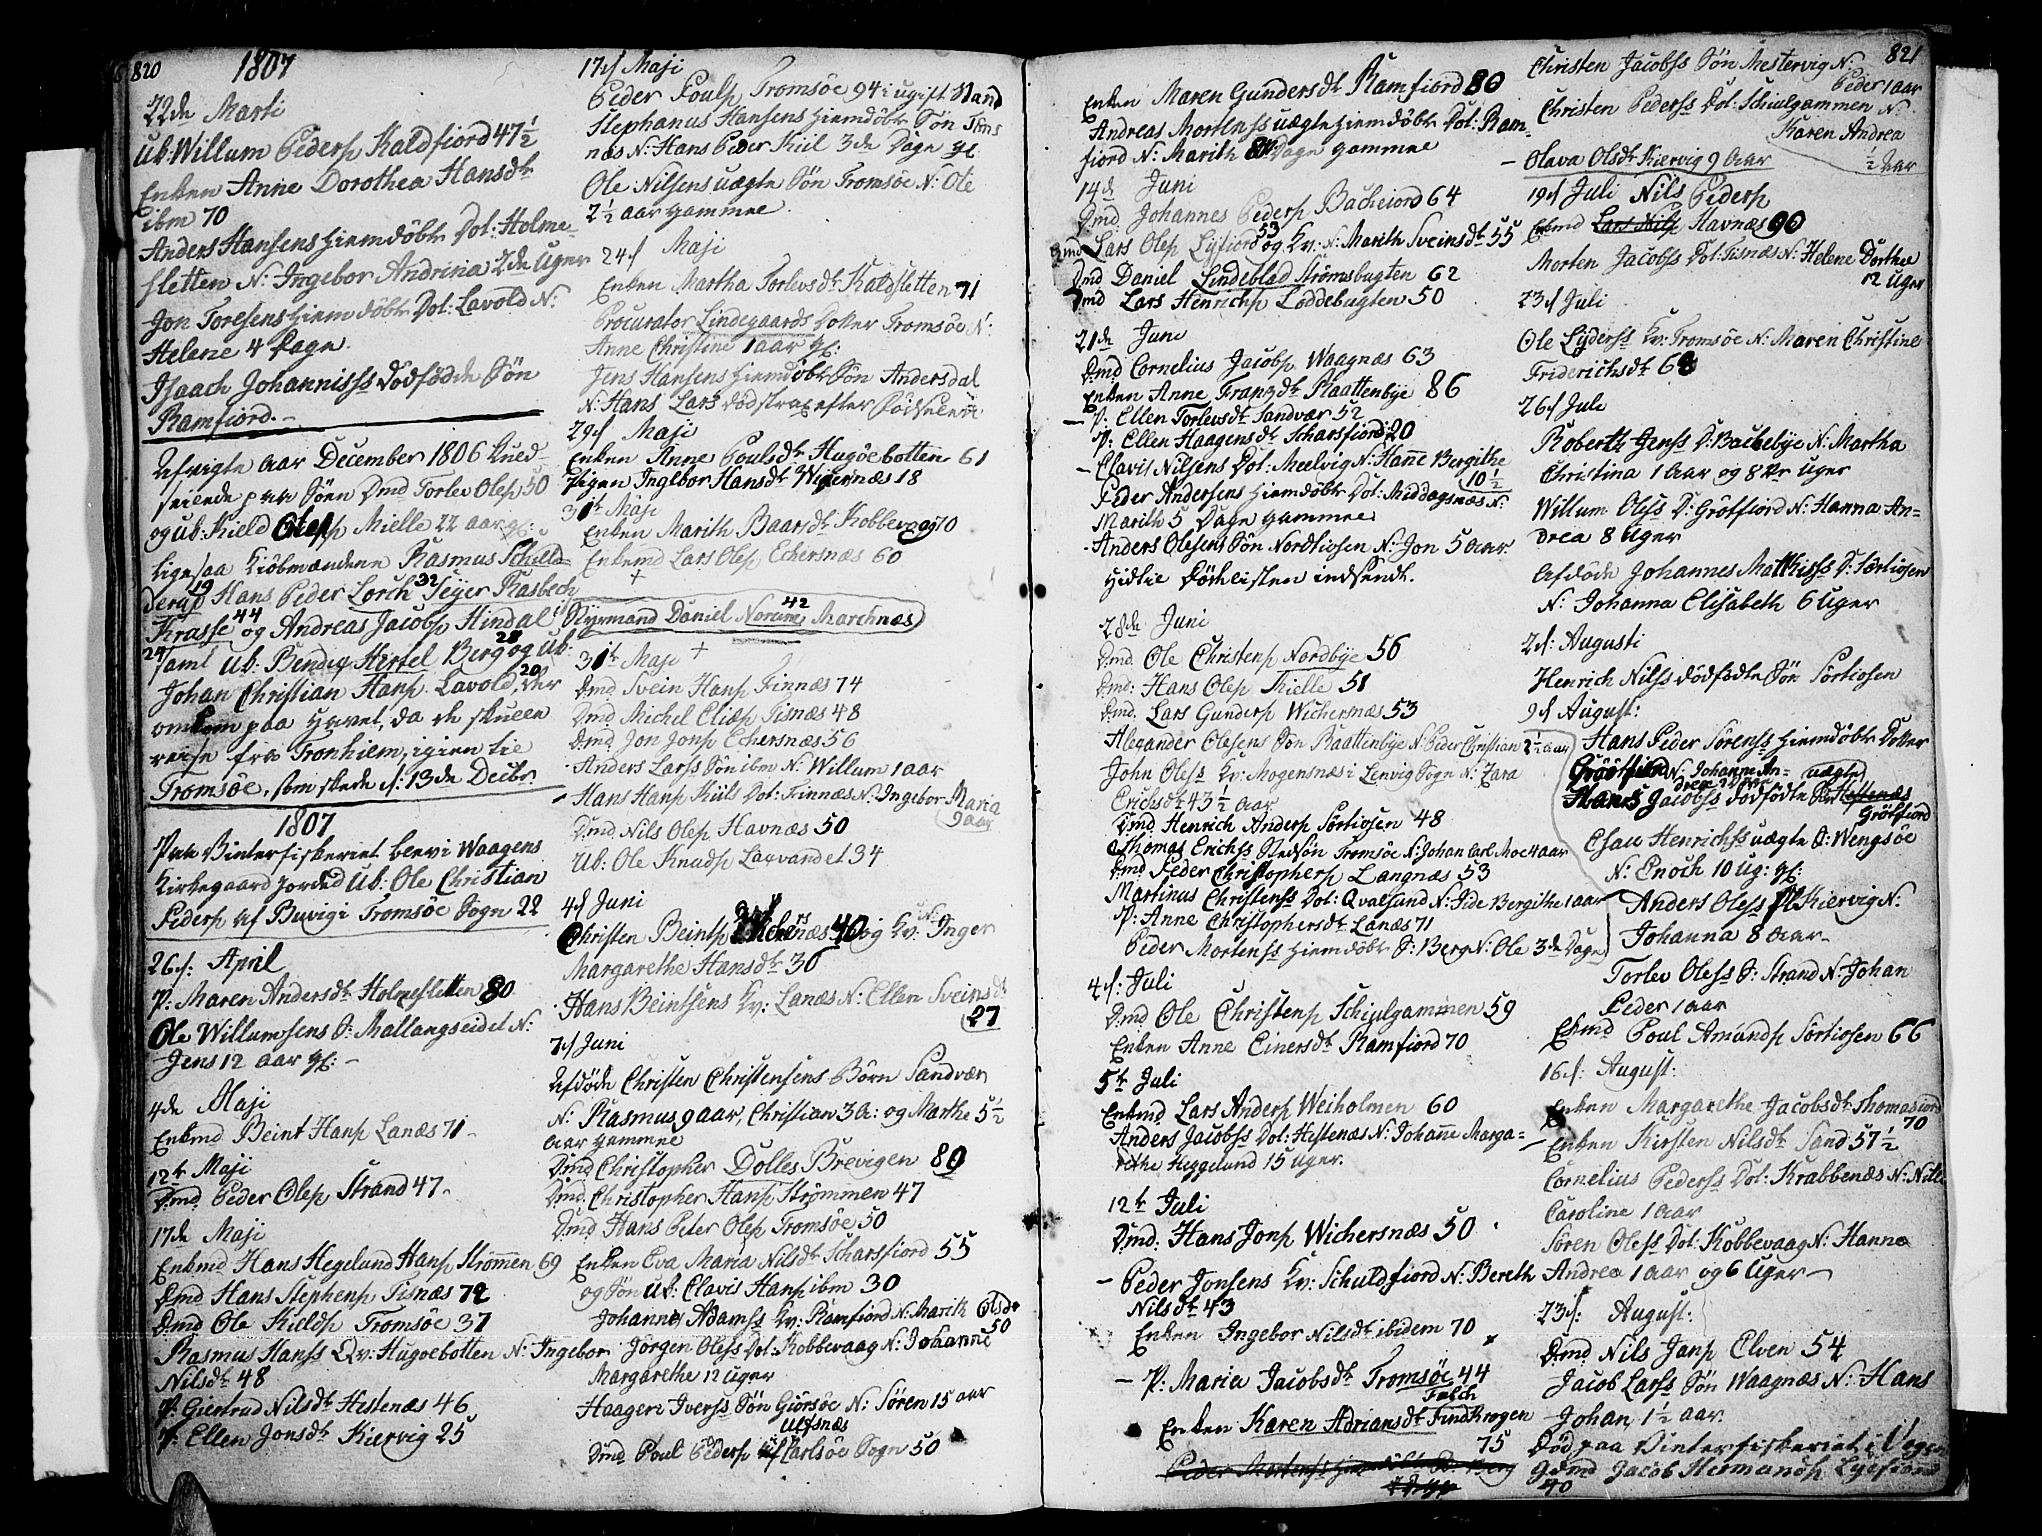 820
1807
22de Marti
Ub: Willum Pedersen Kaldfiord 47½
Enken Anne Dorothea Hansdtr
ibm 70
Anders Hansens hiemdøbte Dot: Holme-
sletten N: Ingebor Andrina 2de Uger
Jon Toresens hiemdøbte Dot: Lavold N:
Helene 4 Dage
Isaach Johannisss dødfødde Søn
Ramfiord.
Afvigte aar December 1806 bleve
paa Søen Dmd Torlev Olesen 50
og Ub: Kield Olesen Mielle 22 aar gl:
ligesaa Kiøbmændene Rasmus Schield-
derup 19 Hans Peder Lorch 32 Seyer Rasbech
Krasse 44 og Andreas Jacobsen Hindal
24 samt Ub: Bendix Hertel Berg 28 og Ub:
Johan Christian Hansen Lavold 20, der
omkom paa Havet, da de skulle
reise fra Tronhiem, igien til
Tromsøe, som skede d: 13de Decbr
1807
Paa Vinterfiskeriet blev i Waagens
Kirkegaard jorded Ub: Ole Christian
Pedersen af Buvig i Tromsøe Sogn 22
26d: April
P: Maren Andersdtr Holmesletten 80
Ole Willumsens S: Mallangseidet N:
Jens 12 aar gl:
4de Maji
Enkmd Beint Hansen Lanæs 71
12te Maji
Dmd Peder Olesen Strand 47
17de Maji
Enkmd Hans Hegelund Hansen Strømmen 69
Dmd Hans Stephensen Tisnæs 72
Dmd Ole Kieldsen Tromsøe 37
Rasmus Hanss Qv: Hugoebotten N: Ingebor
Nilsdtr 48
P: Giertrud Nilsdtr Hestenæs 46
P: Ellen Jonsdtr Kiervig 25
17d Maji
Peder Poulsen Tromsøe 94 i ugift Stand
Stephanus Hansens hiemdøbte Søn Tis-
næs N: Hans Peder Kiil 3de Dage gl
Ole Nilsens uægte Søn Tromsøe N: Ole
2½ aar gammel.
24d Maji
Enken Martha Torlevsdtr Kaldsletten 71
Procurator Lindegaards Dotter Tromsøe N:
Anne Christine 1 aar gl:
Jens Hansens hiemdøbte Søn Andersdal
N: Hans Lars død strax efter Fødselen
29d Maji
Enken Anne Poulsdtr Hugøebotten 61
Pigen Ingebor Hansdtr Wichersnæs 18
31te Maji
Enken Marith Baarsdtr Kobbevaag 70
Enkemd Lars Olesen Echersnæs 60
Styrmand Daniel Norum 42 Marchnæs
31te Maji
Dmd Svein Hansen Finnæs 74
Dmd Michel Eliæsen Tisnæs 48
Dmd. Jon Jonsen Echersnæs 56
Anders Larss Søn ibm N: Willum 1 aar
Hans Hansen Kiils Dot: Finnæs N: Ingebor Maria
9 aar
Dmd. Nils Olesen Havnæs 50
Ub: Ole Knudsen Laxvandet 34
4d Juni
Christen Beintsen 40 og Kv: N: Inger
Margarethe Hansdtr 30
Hans Beintsens Kv: Lanæs N: Ellen Sveinsdtr
27
7d Juni
Afdøde Christen Christensens Børn Sandvær
N: Rasmus 9 aar, Christian 3 A: og Marthe 5½
aar gamle
Dmd Christopher Dolles Brevigen 80
Dmd. Christopher Hansen Strømmen 47
Dmd Hans Peter Olesen Tromsøe 50
Enken Eva Maria Nilsdtr Scharsfiord 55
og Søn Ub: Clavis Hansen ibm 30
Johannes Adamss Kv: Ramfiord N: Marith Olsdtr
50
Jørgen Oless Dot: Kobbevaag N: Johanne
Margarethe 12 Uger
Haagen Iverss Søn Giørsøe N: Søren 15 aar
Ulfsnæs
Dmd Poul Pedersen af Carlsøe Sogn 50
821
Enken Maren Gundersdtr Ramfiord 80
Andreas Mortenss uægte hiemdøbte Dot: Ram-
fiord N: Marith 8 Dage gammel
14de Juni
Dmd Johannes Pedersen Bacheiord 64
Dmd Lars Olesen Lyfiord 53 og Kv: N: Marith Sveinsdtr 55
Dmd Daniel Lindeblad Strømsbugten 62
Dmd Lars Henrichsen Løddebugten 50
21de Juni
Dmd Cornelius Jacobsen Waagnæs 63
Enken Anne Franzdtr Raattenbye 86
P: Ellen Torlevsdtr Sandvær 52
P: Ellen Haagensdtr Scharsfiord 20
Clavis Nilsens Dot: Meelvig N: Hanne Bergithe
10½
Peder Andersens hiemdøbte Dot: Middagsnæs N:
Marith 5 Dage gammel
Anders Olesens Søn Nordkiosen N: Jon 5 aar.
Hidtil Dødelisten indsendt.
28de Juni
Dmd. Ole Christensen Nordbye 56
Dmd: Hans Olesen Kielle 51
Dmd. Lars Gundersen Wichersnæs 53
Alexander Olesens Søn Raattenbye N: Peder Christian 2½ aar
John Oless Kv: Mogensnæs i Lenvig Sogn N: Zara
Erichsdtr 43½ aar
Dmd. Henrich Andersen Sørkiosen 48
Thomas Erichss Stedsøn Tromsøe N: Johan Carl Moe 4 aar
Dmd Peder Christophersen Langnæs 53
Martinus Christenss Dot: Qvalsund N: Side Bergithe 1 aar
P: Anne Christophersdtr Lanæs 71
Peder Mortenss hiemdøbte S: Berg N: Ole 3de Dage
4d: Juli
Dmd Ole Christensen Schiulgammen 59
Enken Anne Einersdtr Ramfiord 70
5te Juli
Enkmd Lars Andersen Weiholmen 60
Anders Jacobss Dot: Hestenæs N: Johanne Marga-
rethe Heggelund 15 Uger.
12te Juli
Dmd: Hans Jonsen Wichersnæs 50
Peder Jonsens Kv: Schuldfiord N: Bereth
Nilsdtr 43
Enken Ingebor Nilsdtr ibidem 70
P: Maria Jacobsdtr Tromsøe 44
Falch
Enken Karen Adriansdtr Find Krogen
75
Peder Mortenss hiemdøbte S: Berg
Christen Jacobss Søn Mestervig N:
Peder 1 aar
Christen Pederss Dot: Schiulgammen N:
Karen Andrea
½ Aar
Olava Olsdtr Kiervig 9 Aar
19d Juli Nils Pedersen
Enkmd Lars Nilsen Havnæs 90
Morten Jacobss Dot: Tisnæs N: Helene Dorthea
12 Uger
23d Juli
Ole Lyderss Kv: Tromsøe N: Maren Christine
Friderichsdtr 68
26d Juli
Roberth Jenss D: Bachebye N: Martha
Christina 1 Aar og 8 Uger
Willum Olss D: Grøtfiord N: Hanna An-
drea 8 Uger
Afdøde Johannes Matthisss D: Sørkiosen
N: Johanna Elisabeth 6 Uger
2d: Augusti
Henrich Nilss dødfødte Søn Sørkiosen
9d August:
Hans Peder Sørenss hiemdøbte Dotter
Grøtfiord N: Johanne An-
drea
Hans Jacobss uægte dødfødte Søn Hestenæs
Grøtfiord
Esau Henrichss uægte S: Wengsøe
N: Enoch 10 Ug: gl:
Anders Oless Kiervig N:
Johanna 8 Aar
Torlev Oless S: Strand N: Johan
Peder 1 aar
Ekmd Poul Amundsen Sørkiosen 66
16d: August:
Enken Margarethe Jacobsdtr Thomasiord
70
Enken Kirsten Nilsdtr Sand 57½
Cornelius Pederss Dot: Krabbenæs N:
Caroline 1 Aar
Søren Oless Dot: Kobbevaag N: Hanna
Andrea 1 Aar og 6 Uger
23d: August:
Dmd Nils Jansen Elven 54
Jacob Larss Søn Waagnæs N: Hans
Johan 1½ aar
Død paa Vinterfiskeriet i
Gdmd Jacob Hermandsen Lyefiord
40